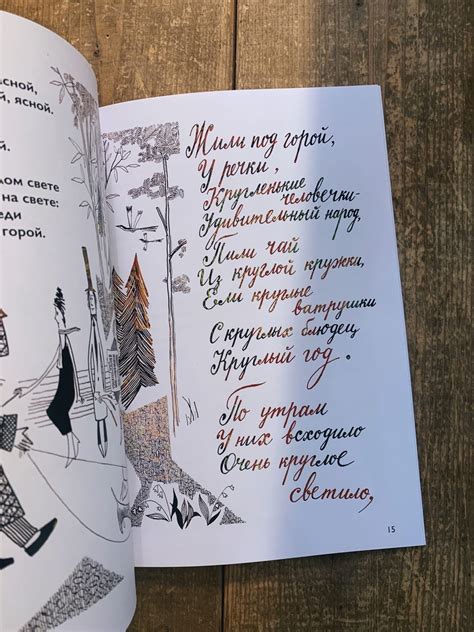 сной,
й, ясной.
й.
ом свете
на свете:
еди
горой.
Жили под горой,
У речки,
Кругленькие
человечки-
Удивительный народ,
Пили чай
Из круглой кружки,
Ели круглые
ватрушки
С круглых блюдец
Круглый год.
По утрам
У них всходило
Очень круглое
светило,
15